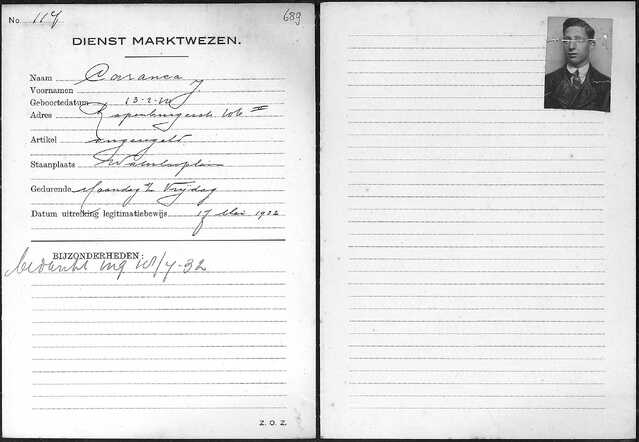 No. 117 689
DIENST MARKTWEZEN.
Naam Caranca
Voornamen J
Geboortedatum 13-2-
Adres Rapenburgerstr. II
Artikel ongeregeld
Staanplaats Waterlooplein
Gedurende Maandag t/m Vrijdag
Datum uitreiking legitimatiebewijs 17 Mei 1932
BIJZONDERHEDEN:
bedankt ing /7-32
Z. O. Z.